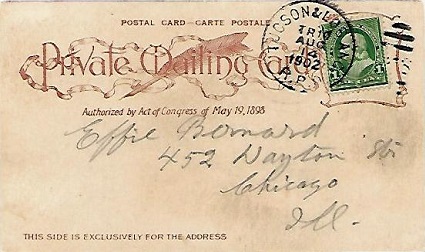 POSTAL CARD - CARTE POSTALE
Private Mailing Card
Authorized by Act of Congress of May 19, 1898
TUCSON &
TR 10
AUG
1902
R.P.O.
Effie Bernard
452 Dayton Str
Chicago
Ill.
THIS SIDE IS EXCLUSIVELY FOR THE ADDRESS